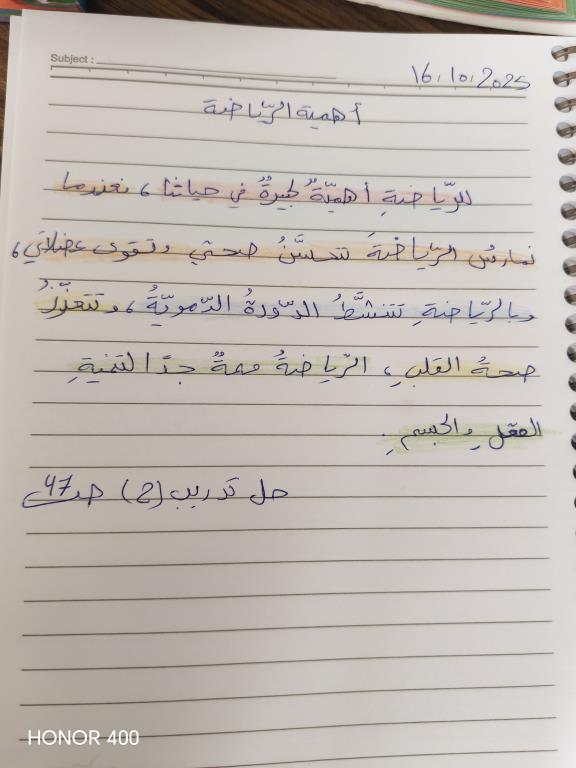 Subject :
16.10.2025
أهمية الرّياضة
للرّياضةِ أهميّةٌ كبيرةٌ في حياتنا، فعندما
نمارسُ الرّياضةَ تتحسَّنُ صحتي وتقوى عضلاتي،
وبالرّياضةِ تتنشَّطُ الدّورةُ الدّمويّةُ، وتتعزّزُ
صحةُ القلبِ، الرّياضةُ مهمةٌ جدًا لتنميةِ
العقلِ والجسمِ.
حل تدريب (2) صـ 47
HONOR 400